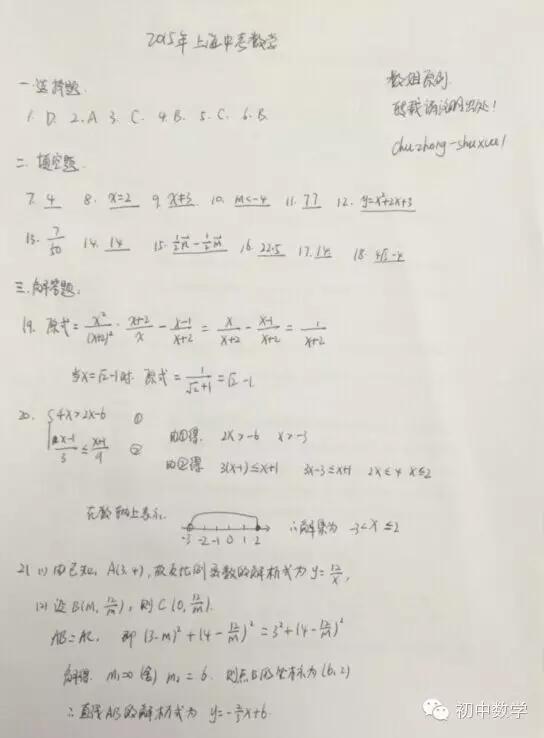 2015年上海中考数学
数姐原创
转载请注明出处!
chuzhong-shuxue1
一.选择题.
1. D. 2. A 3. C. 4. B. 5. C. 6. B.
二.填空题.
7. 4 8. x=2 9. x+3 10. m<-4 11. 77 12. y=x²+2x+3
13. 7/50 14. 14 15. 1/2n→ - 1/2m→ 16. 22.5 17. 14 18. 4√3-4
三.解答题.
19. 原式= x²/(x+2)² · (x+2)/x - (x-1)/(x+2) = x/(x+2) - (x-1)/(x+2) = 1/(x+2)
当x=√2-1时. 原式= 1/(√2+1) =√2-1
20. { 4x>2x-6 ①
(x-1)/3 ≤ (x+1)/9 ②
由①得. 2x>-6 x>-3
由②得 3(x-1)≤x+1 3x-3≤x+1 2x≤4 x≤2
在数轴上表示.
-3 -2 -1 0 1 2
∴解集为 -3<x≤2
21 (1) 由已知, A(3,4), 故反比例函数的解析式为 y=12/x,
(2) 设B(m, 12/m), 则C(0, 12/m).
AB=AC, 即 (3-m)²+(4-12/m)²=3²+(4-12/m)²
解得. m₁=0(舍) m₂=6. 则点B的坐标为(6,2)
∴直线AB的解析式为 y=-2/3x+6.
初中数学